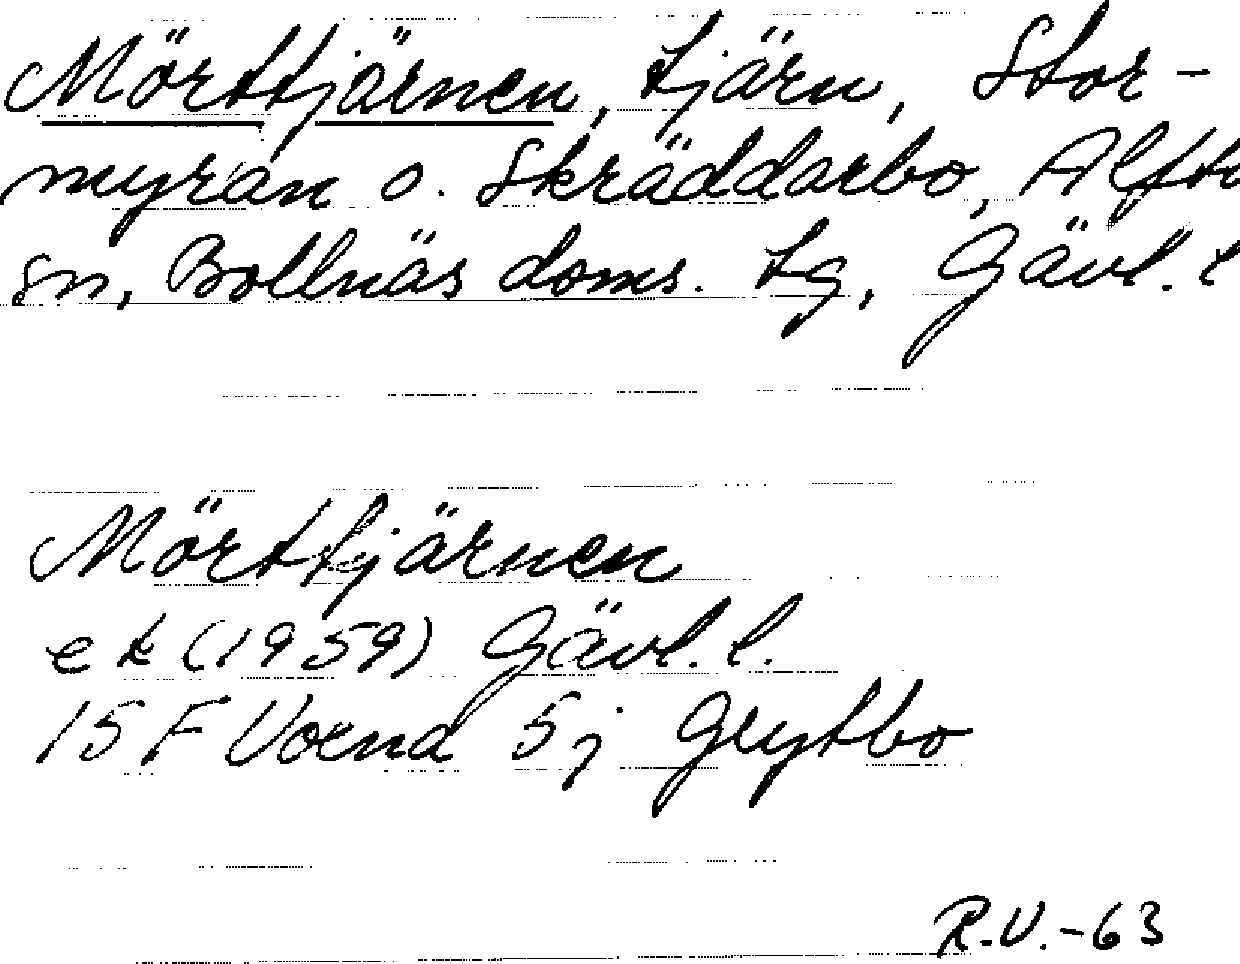 Mörttjärnen, tjärn, Stor-
myran o. Skräddarbo, Alfta
sn, Bollnäs doms. tg, Gävl. l
Mörttjärnen
ek (1959) Gävl. l.
15 F Voxna 5j Grytbo
R.V.-63